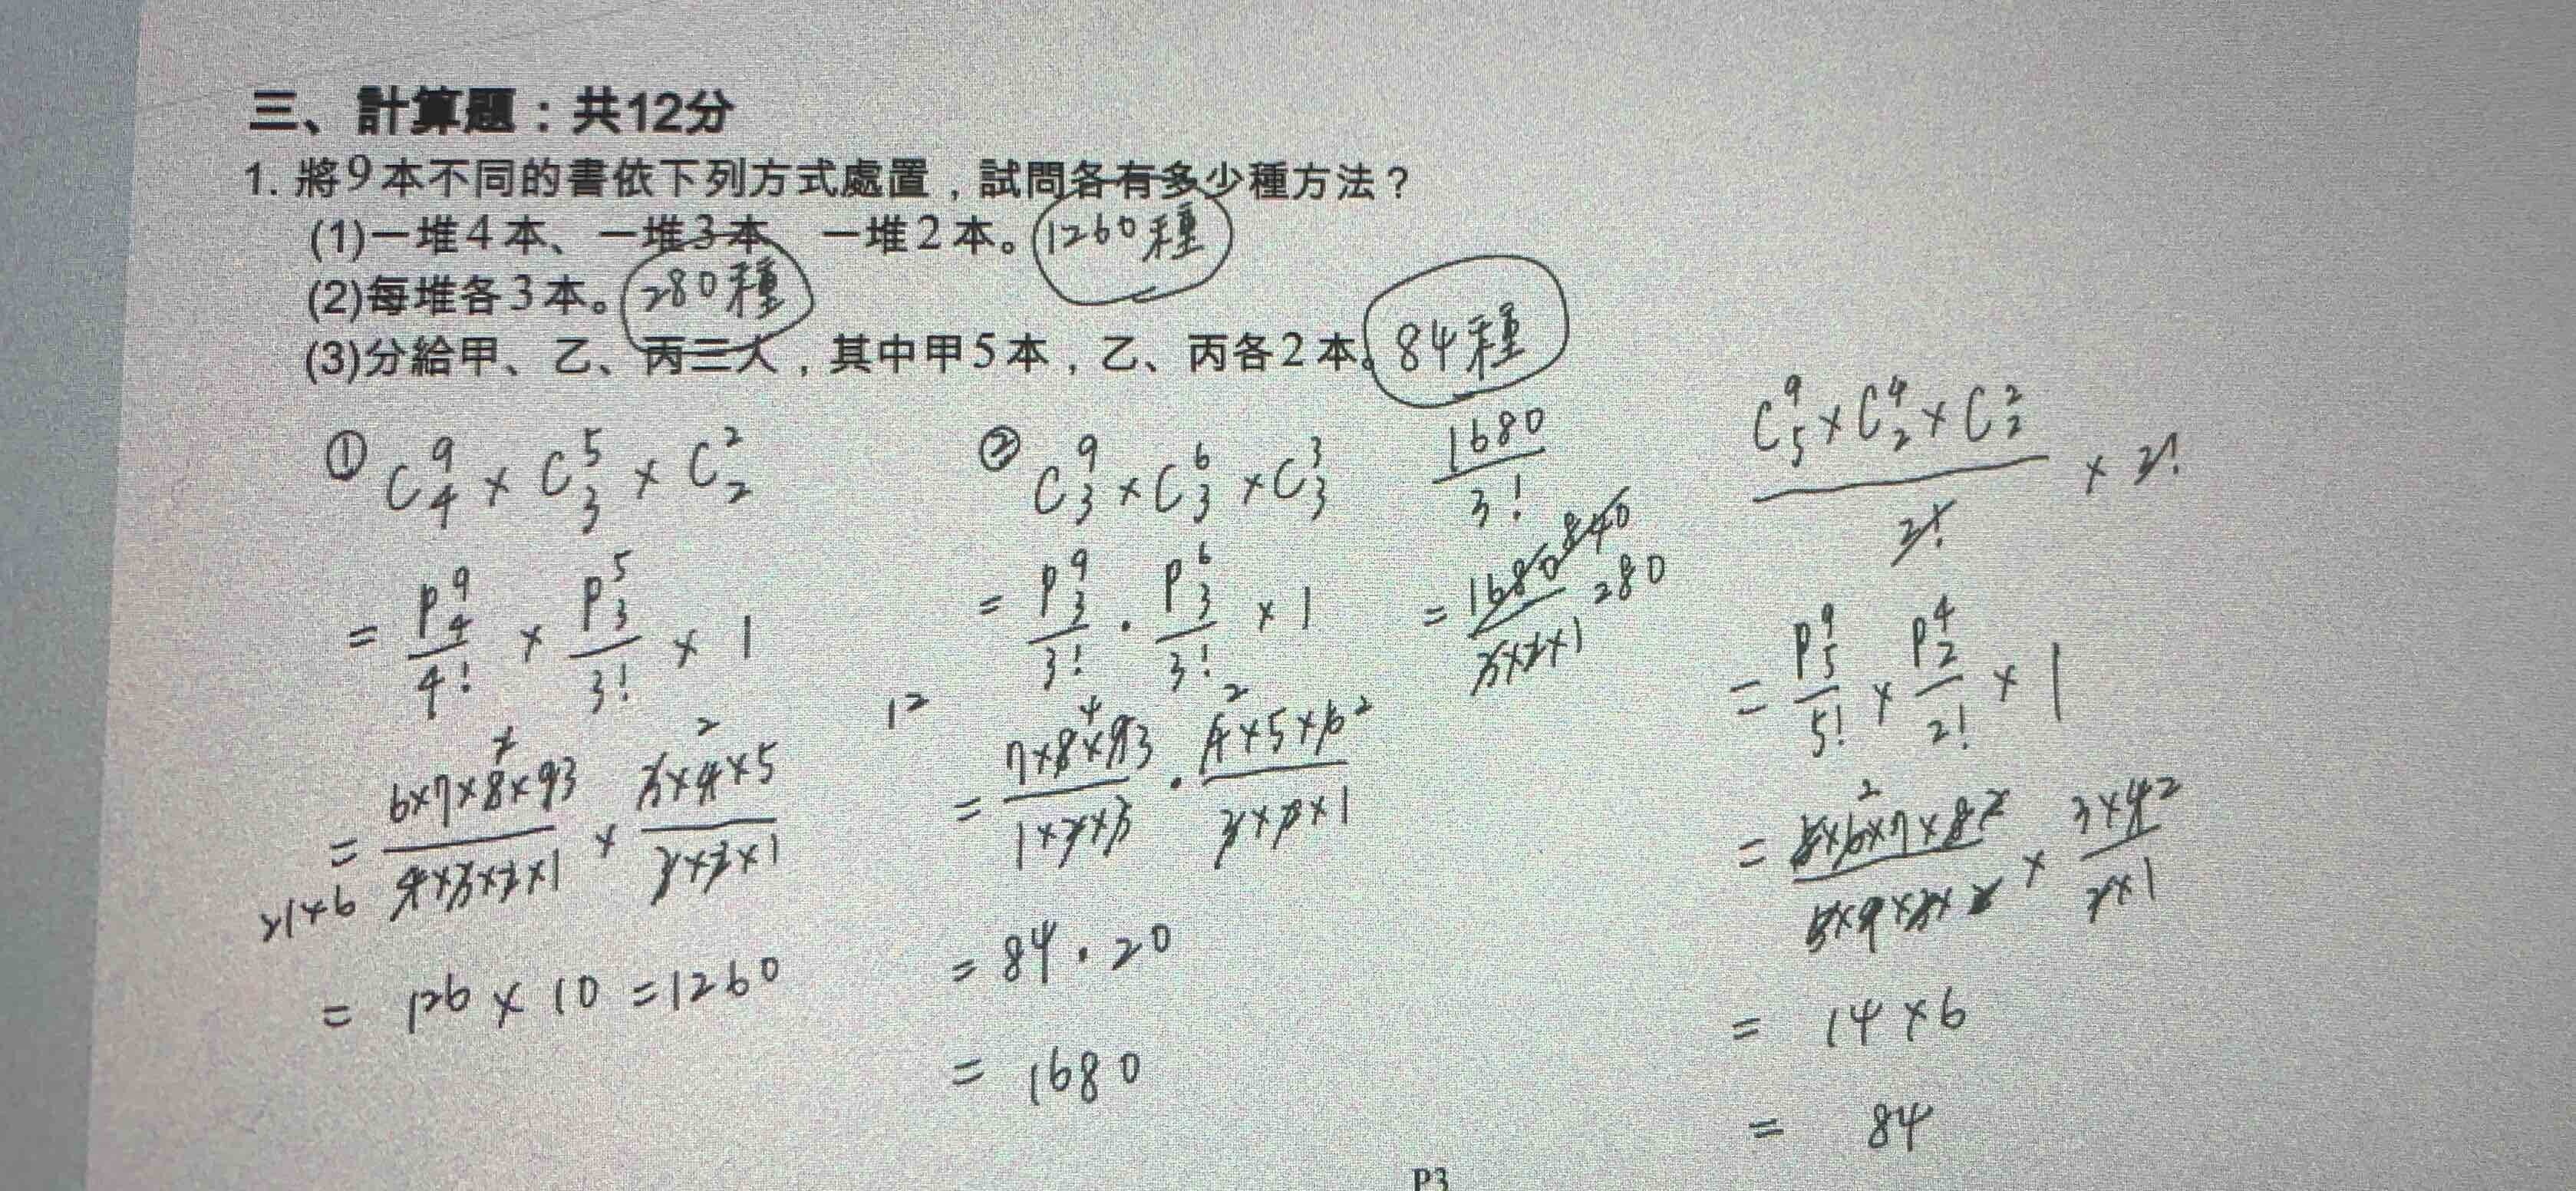 三、計算題：共12分
1. 將9本不同的書依下列方式處置，試問各有多少種方法？
(1)一堆4本、一堆3本 一堆2本。 1260種
(2)每堆各3本。 280種
(3)分給甲、乙、丙三人，其中甲5本，乙、丙各2本。 84種
① C⁹₄ × C⁵₃ × C²₂
= P⁹₄/4! × P⁵₃/3! × 1
= 6×7×8×93/4×3×2×1 × 3×4×5/3×2×1
= 126 × 10 = 1260
② C⁹₃ × C⁶₃ × C³₃
= P⁹₃/3! · P⁶₃/3! × 1
12
= 7×8×93/1×2×3 · 4×5×6²/3×2×1
= 84 · 20
= 1680
1680/3!
= 1680/3×2×1 840 280
C⁹₅ × C⁴₂ × C²₂/2! × 2!
= P⁹₅/5! × P⁴₂/2! × 1
= 14 × 6
= 84
P3